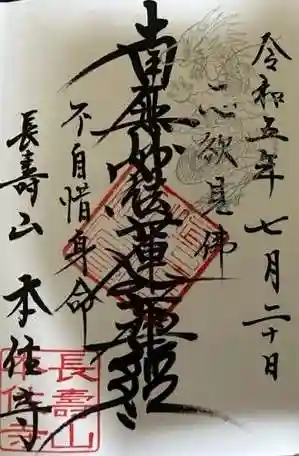 令和五年七月二十日
一心欲見佛
南無妙法蓮華経
不自惜身命
長壽山 本住寺
長壽山
本住寺